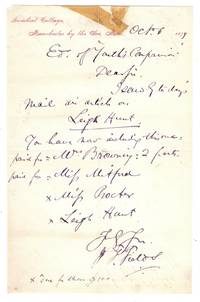 Manchester by the Sea, Mass.
Oct. 6
Ed. of "Youth's Companion"
Dear Sir.
I send by to-day's
mail an article on
Leigh Hunt.
You have now
paid for = Mrs Browning:
paid for = Miss Mitford
x Miss Procter
x Leigh Hunt
J. T. Fields